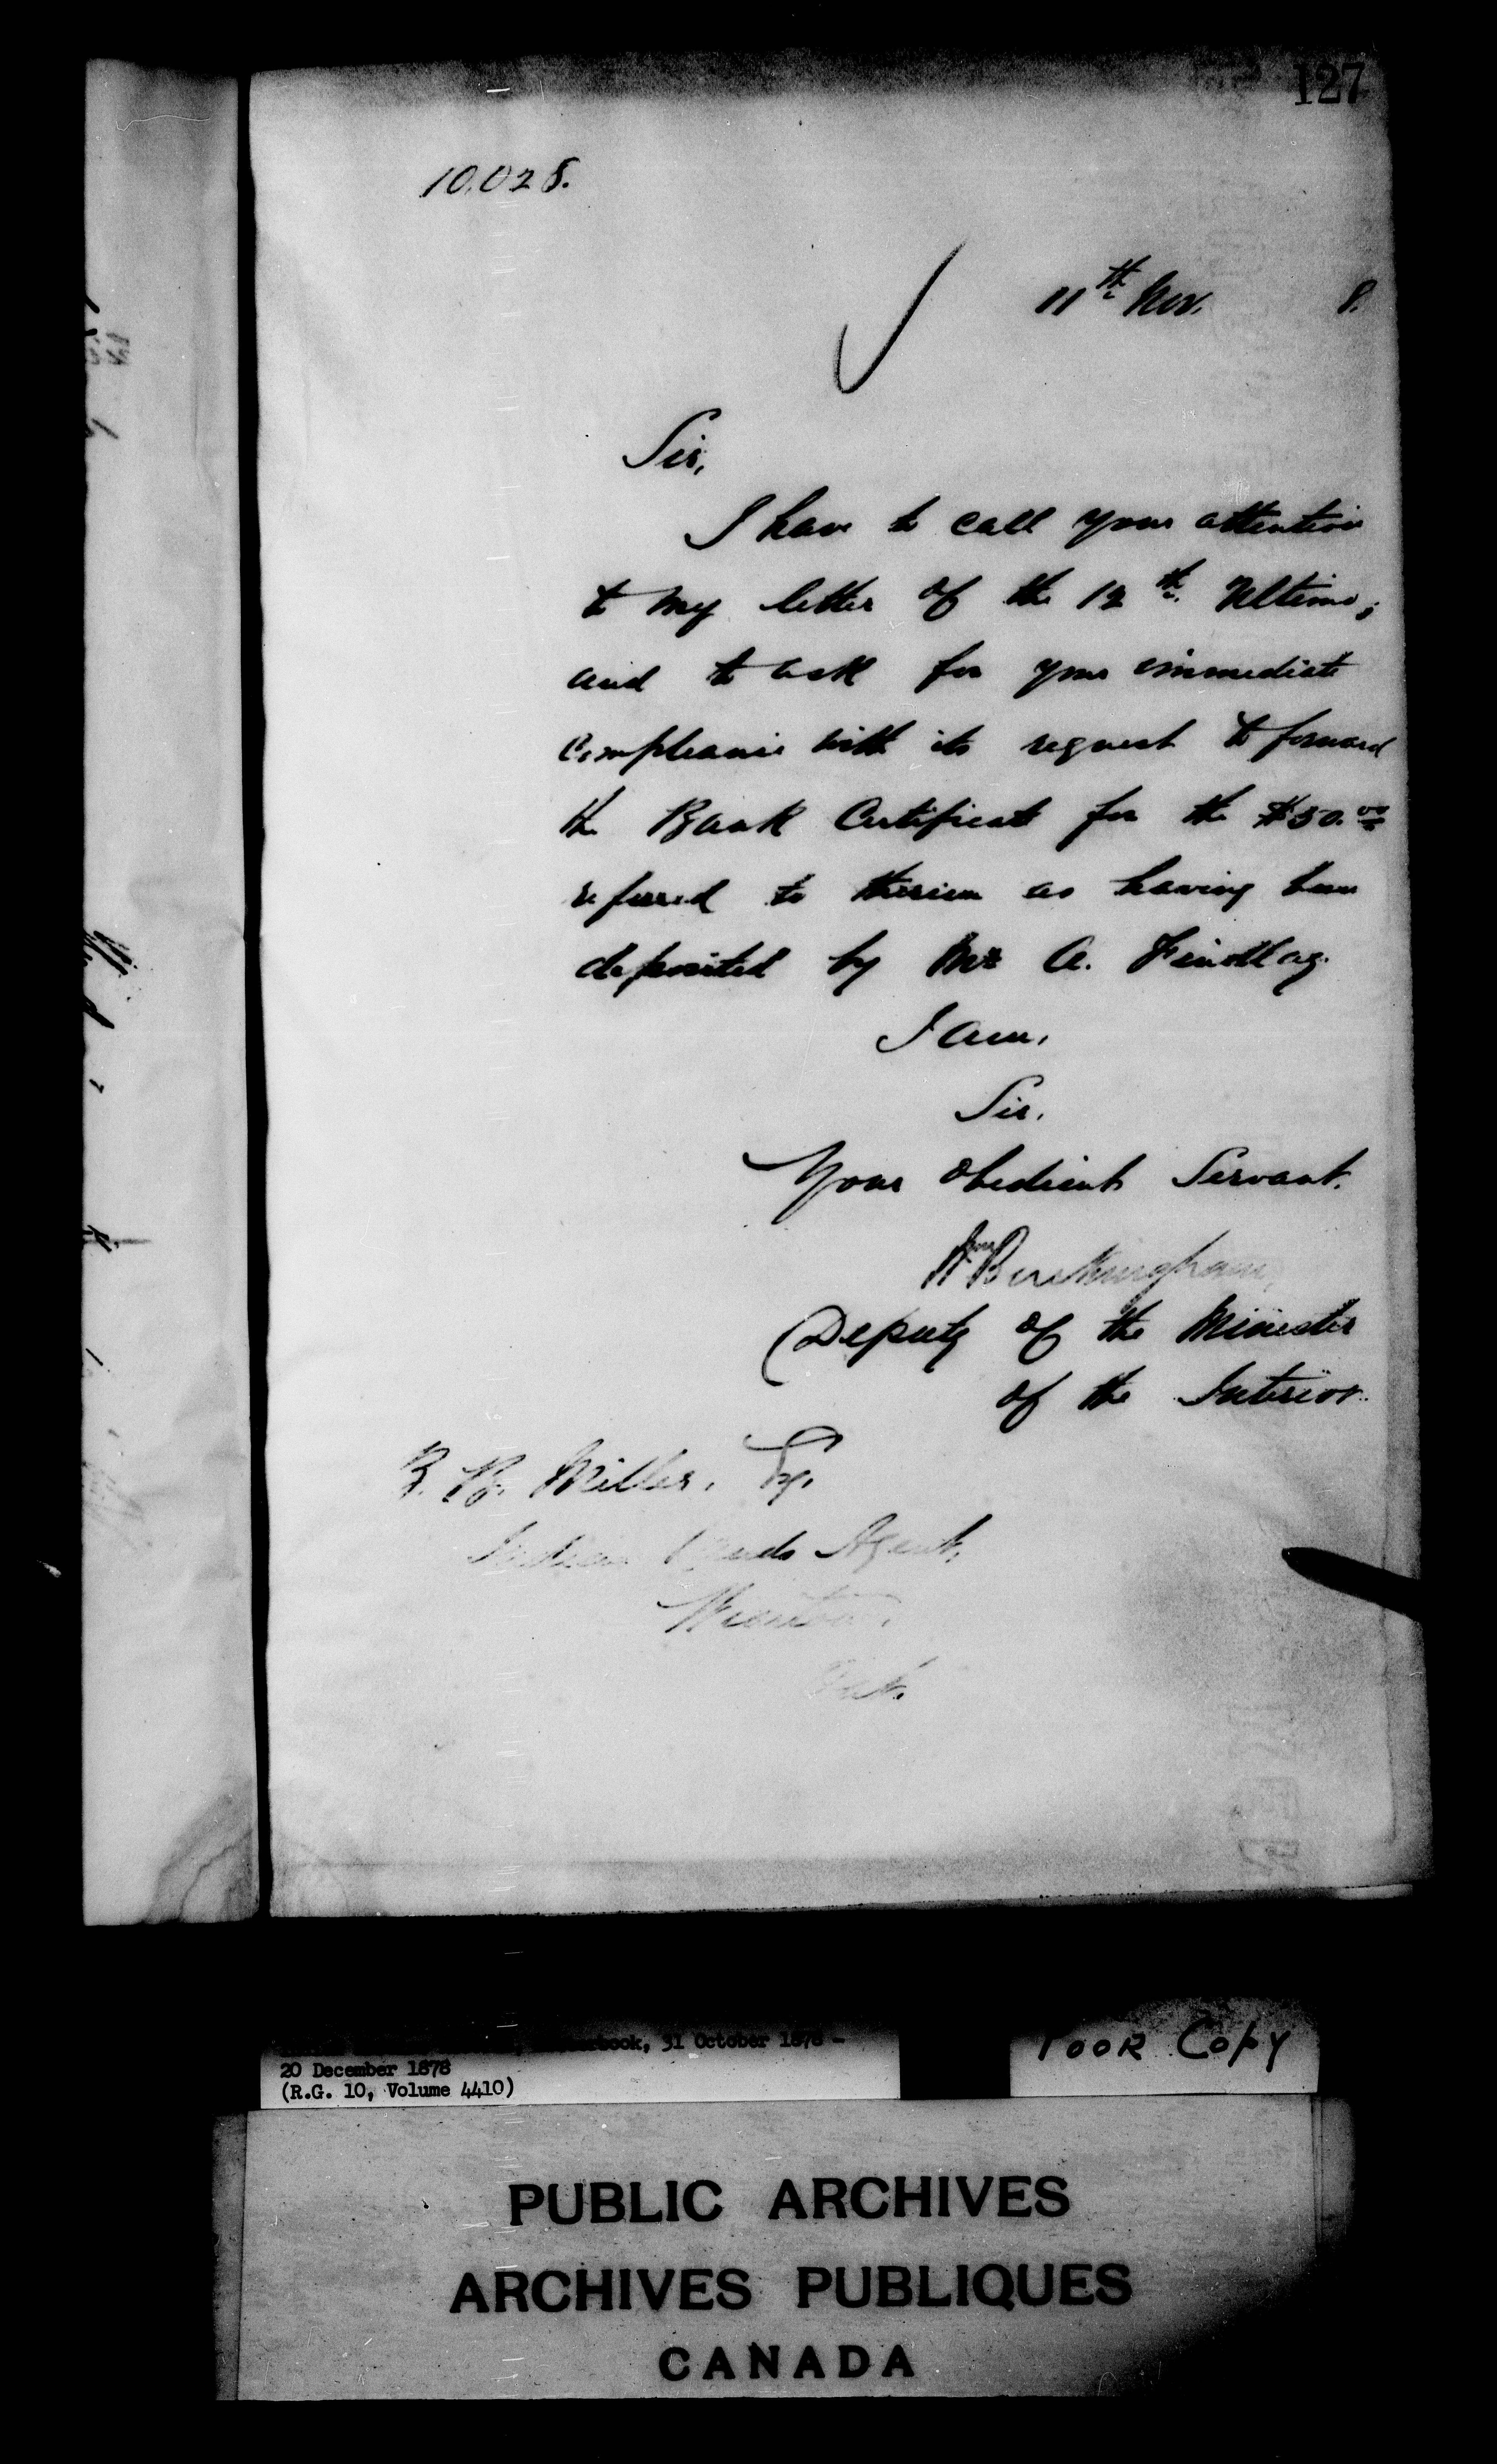 127
10.028.
11th Nov. 8.
Sir,
I have to call your attention
to my letter of the 12th Ultimo,
and to ask for your immediate
compliance with its request to forward
the Bank Certificate for the $50.00
referred to therein as having been
deposited by Mr A. Findlay.
I am,
Sir.
Your Obedient Servant.
Wm Buckingham
Deputy of the Minister
of the Interior.
B. B. Miller, Esq.
Indian Lands Agent,
Wiarton.
Ont.
31 October 1878 -
20 December 1878
(R.G. 10, Volume 4410)
POOR COPY
PUBLIC ARCHIVES
ARCHIVES PUBLIQUES
CANADA